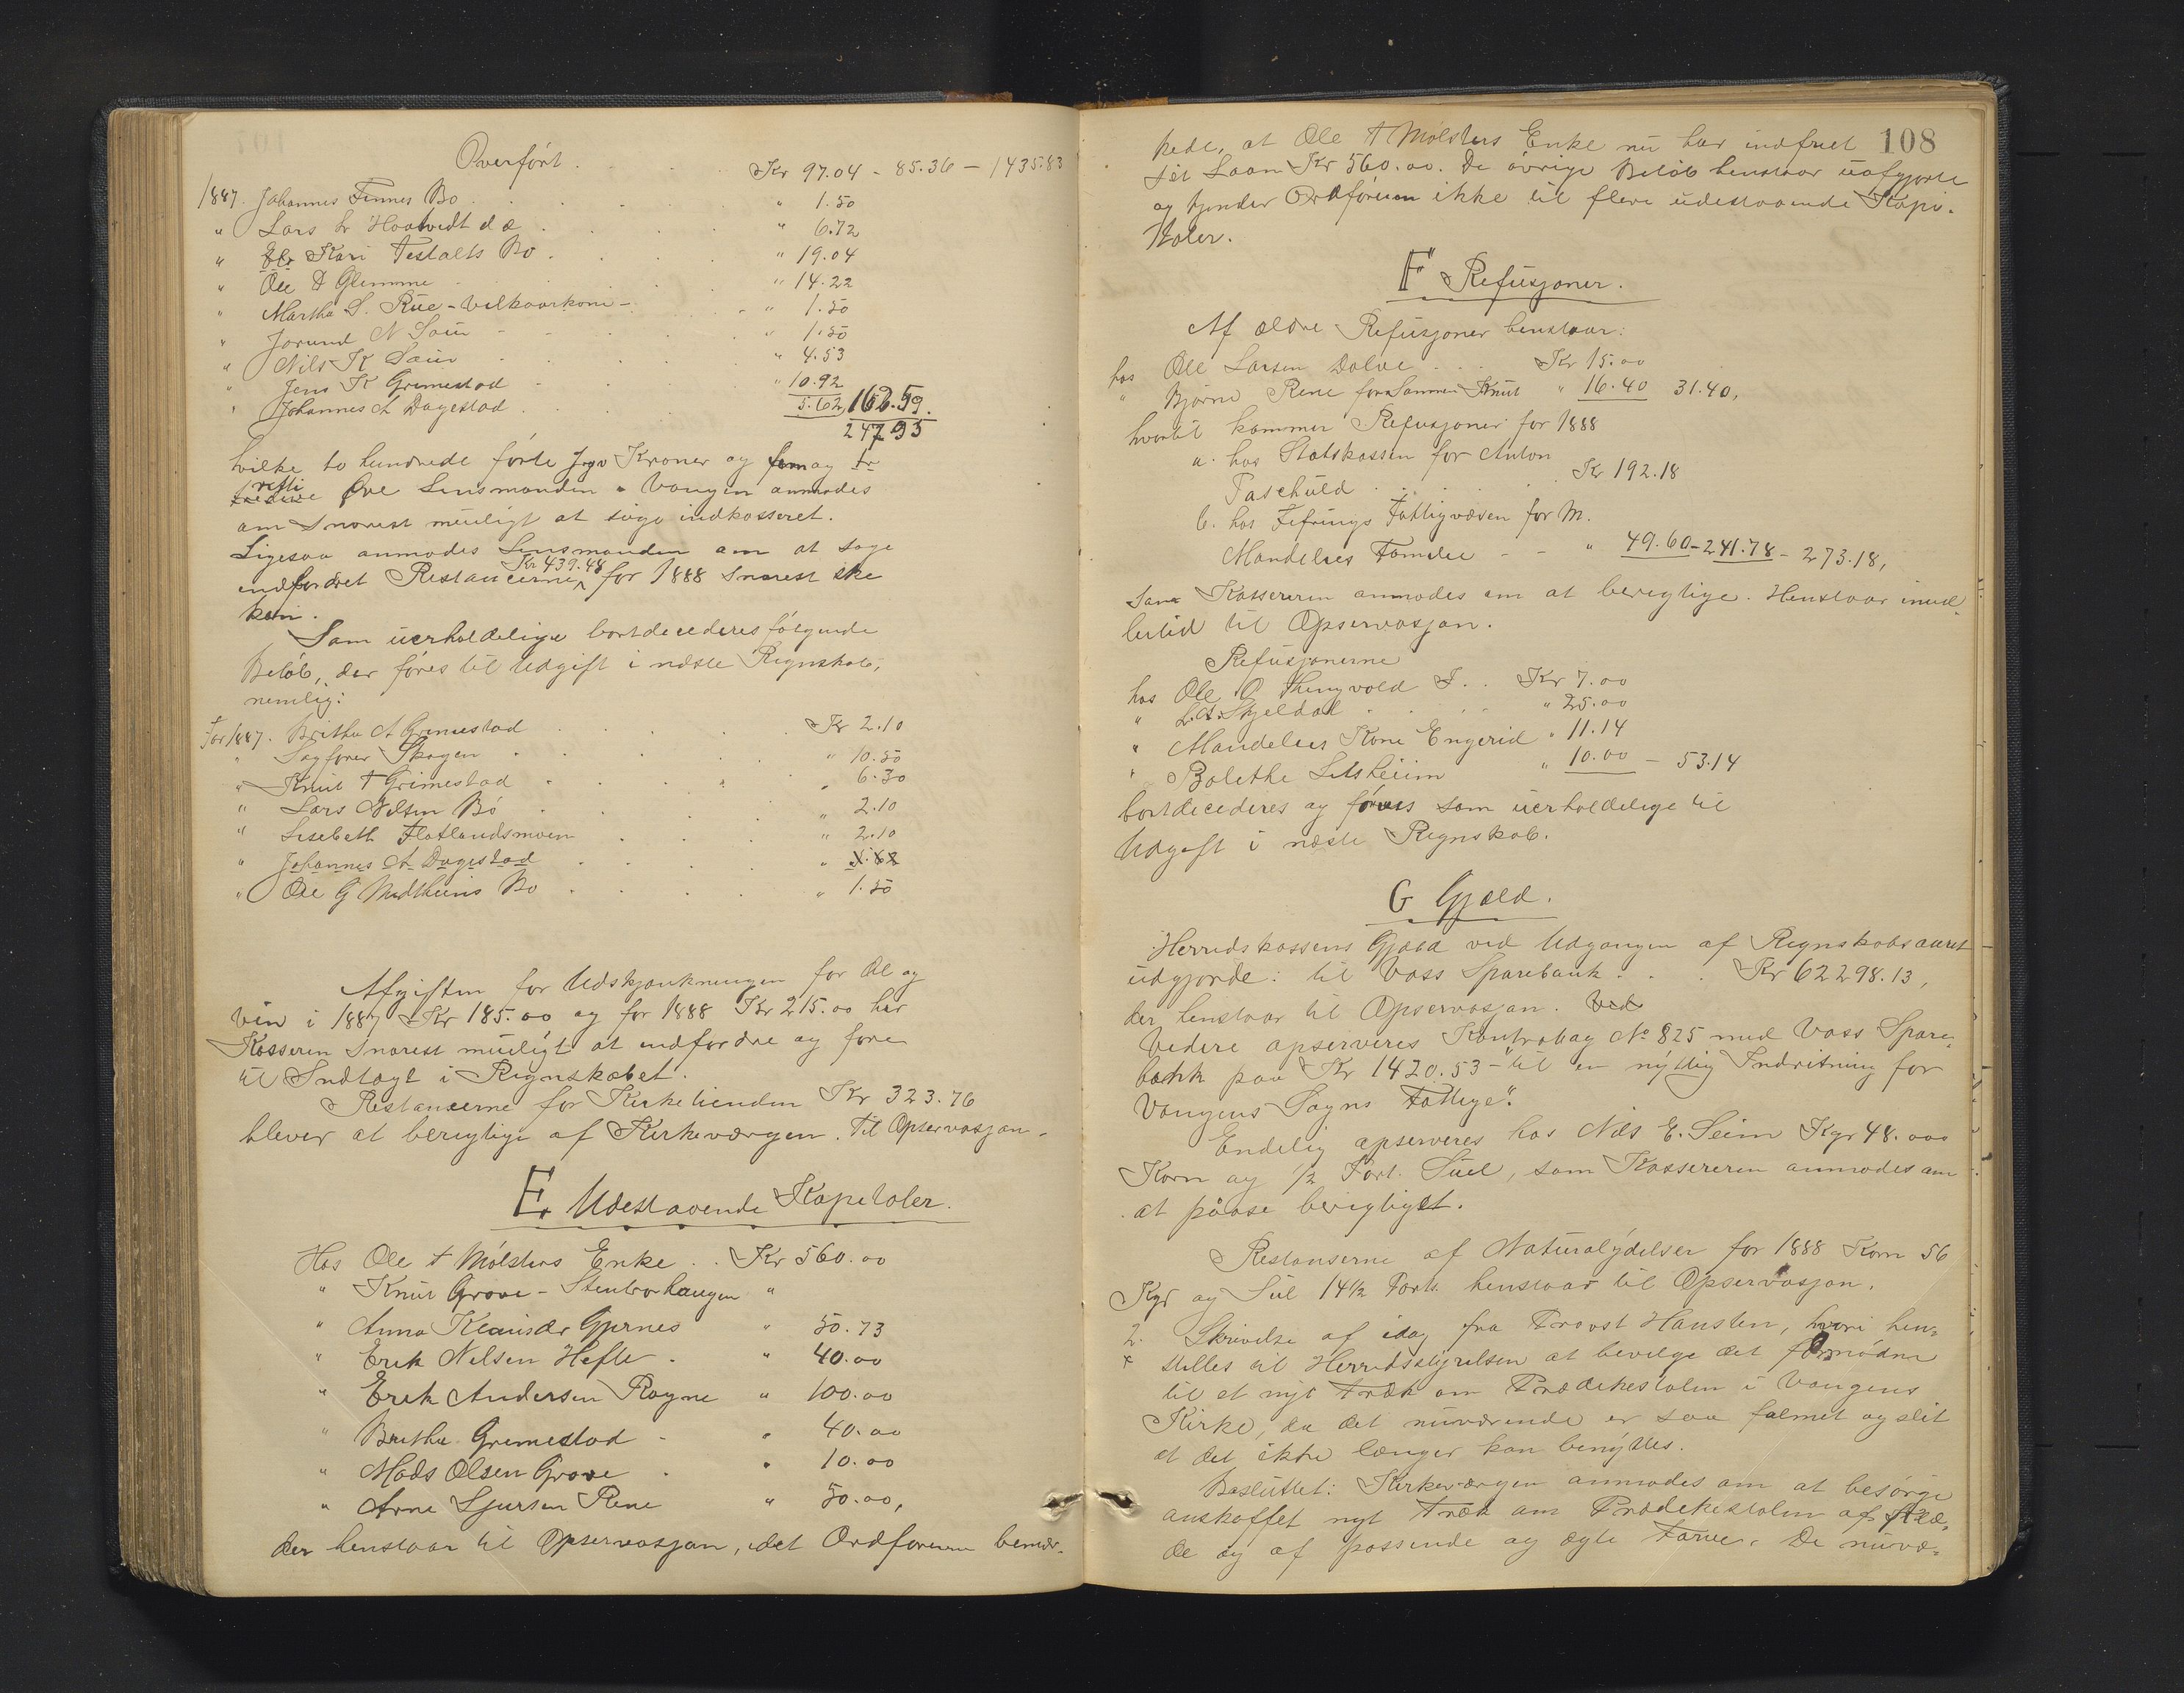 Overført . . . Kr 97.04 - 85.36 - 1435.83
1887. Johannes Finnes Bo . . . " 1.50
" Lars L Haatvedt d æ . . . " 6.72
" Kari Festalts Bo . . . " 19.04
" Ole D Glimme . . . " 14.22
" Martha S. Rue - Vilkaarkone - . . " 1.50
" Jorund N Saue - - . . " 1.50
" Nils K Saue . . . " 4.53
" Jens K Grimestad . . . " 10.92
" Johannes A Dagestad . . . 5.62 162.59.
247.95
hvilke to hundrede førti syv Kroner og fem og
Øre Lensmanden i Vangen anmodes
om snarest muligt at søge indkasseret.
Ligesaa anmodes Lensmanden om at søge
indfordret Restancerne Kr 439.48 for 1888 snarest ske
kan.
Som uerholdelige bortdecederes følgende
Beløb, der føres til Udgift i næste Regnskab,
nemlig:
for 1887. Britha A Grimestad . . . Kr 2.10
" Sagfører Skogen . . . " 10.50
" Knut T Grimestad . . . " 6.30
" Lars Nilsen Bø . . . " 2.10
" Lisebeth Flatlandsmoen . . . " 2.10
" Johannes A Dagestad . . . " 5.62
" Ole G Midtheims Bo . . . " 1.50
Afgiften for Udskjænkningen for Øl og
Vin i 1887 Kr 185.00 og for 1888 Kr 215.00 har
Kasseren snarest muligt at indfordre og føre
til Indtægt i Regnskabet.
Restancerne for Kirketienden Kr 323.76
blever at berigtige af Kirkeværgen. Til Opservasjon.
E. Udestaaende Kapitaler.
Hos Ole T Mølsters Enke . . Kr 560.00
" Knut Grove - Stenbrohaugen "
" Anna Gjernes " 50.73
" Erik Nilsen Hefte . " 40.00
" Erik Andersen Rogne " 100.00
" Britha Grimestad - " 40.00
" Mads Olsen Grove . " 10.00
" Arne Sjursen Rene " 50.00,
der henstaar til Opservasjon, idet Ordføreren bemær-
108
kede, at Ole T Mølsters Enke nu har indfriet
sit Laan Kr 560.00. De øvrige Beløb henstaar uafgjorte
og kjender Ordføreren ikke til flere udestaaende Kapi-
taler.
F Refusjoner.
Af ældre Refusjoner henstaar:
hos Ole Larsen Dalve . . . Kr 15.00
" Bjørne Rene for Sønnen Knut " 16.40 31.40,
hvortil kommer Refusjoner for 1888
a. hos Statskassen for Anton
Taschuld . . . Kr 192.18
b. hos Jefrings Fattigvæsen for M.
Mandelies Familie - - " 49.60 - 241.78 - 273.18,
som Kassereren anmodes om at berigtige. Henstaar imid-
lertid til Opservasjon.
Refusjonerne
hos Ole O Thungvold S. . . Kr 7.00
" L. A. Skjeldal . . . " 25.00
" Mandelies Kone Engerid " 11.14
" Bolethe Litsheim " 10.00 - 53.14
bortdecederes og føres som uerholdelige til
Udgift i næste Regnskab.
G Gjæld.
Herredskassens Gjæld ved Udgangen af Regnskabsaaret
udgjorde: til Voss Sparebank . . . Kr 62298.13,
der henstaar til Opservasjon. Ved
Videre opserveres Kontrabog No 825 med Voss Spare-
bank paa Kr 1420.53 - "til en nyttig Indretning for
Vangens Sogns Fattige".
Endelig opserveres hos Nils E. Seim Kgr 48.000
Korn og 1/2 Fort. Suel, som Kassereren anmodes om
at paase berigtiget.
Restanserne af Naturalydelser for 1888 Korn 56
Kgr og Sul 14 1/2 Fort. henstaar til Opservasjon.
2. Skrivelse af idag fra Provst Hansten, hvori hen-
stilles til Herredsstyrelsen at bevilge det fornødne
til et nyt Træk om Prædikestolen i Vangens
Kirke, da det nuværende er saa falmet og slit
at det ikke længer kan benyttes.
Besluttet: Kirkeværgen anmodes om at besørge
anskaffet nyt Træk om Prædikestolen af Klæ-
de og af passende og ægte Farve. De nuvæ-